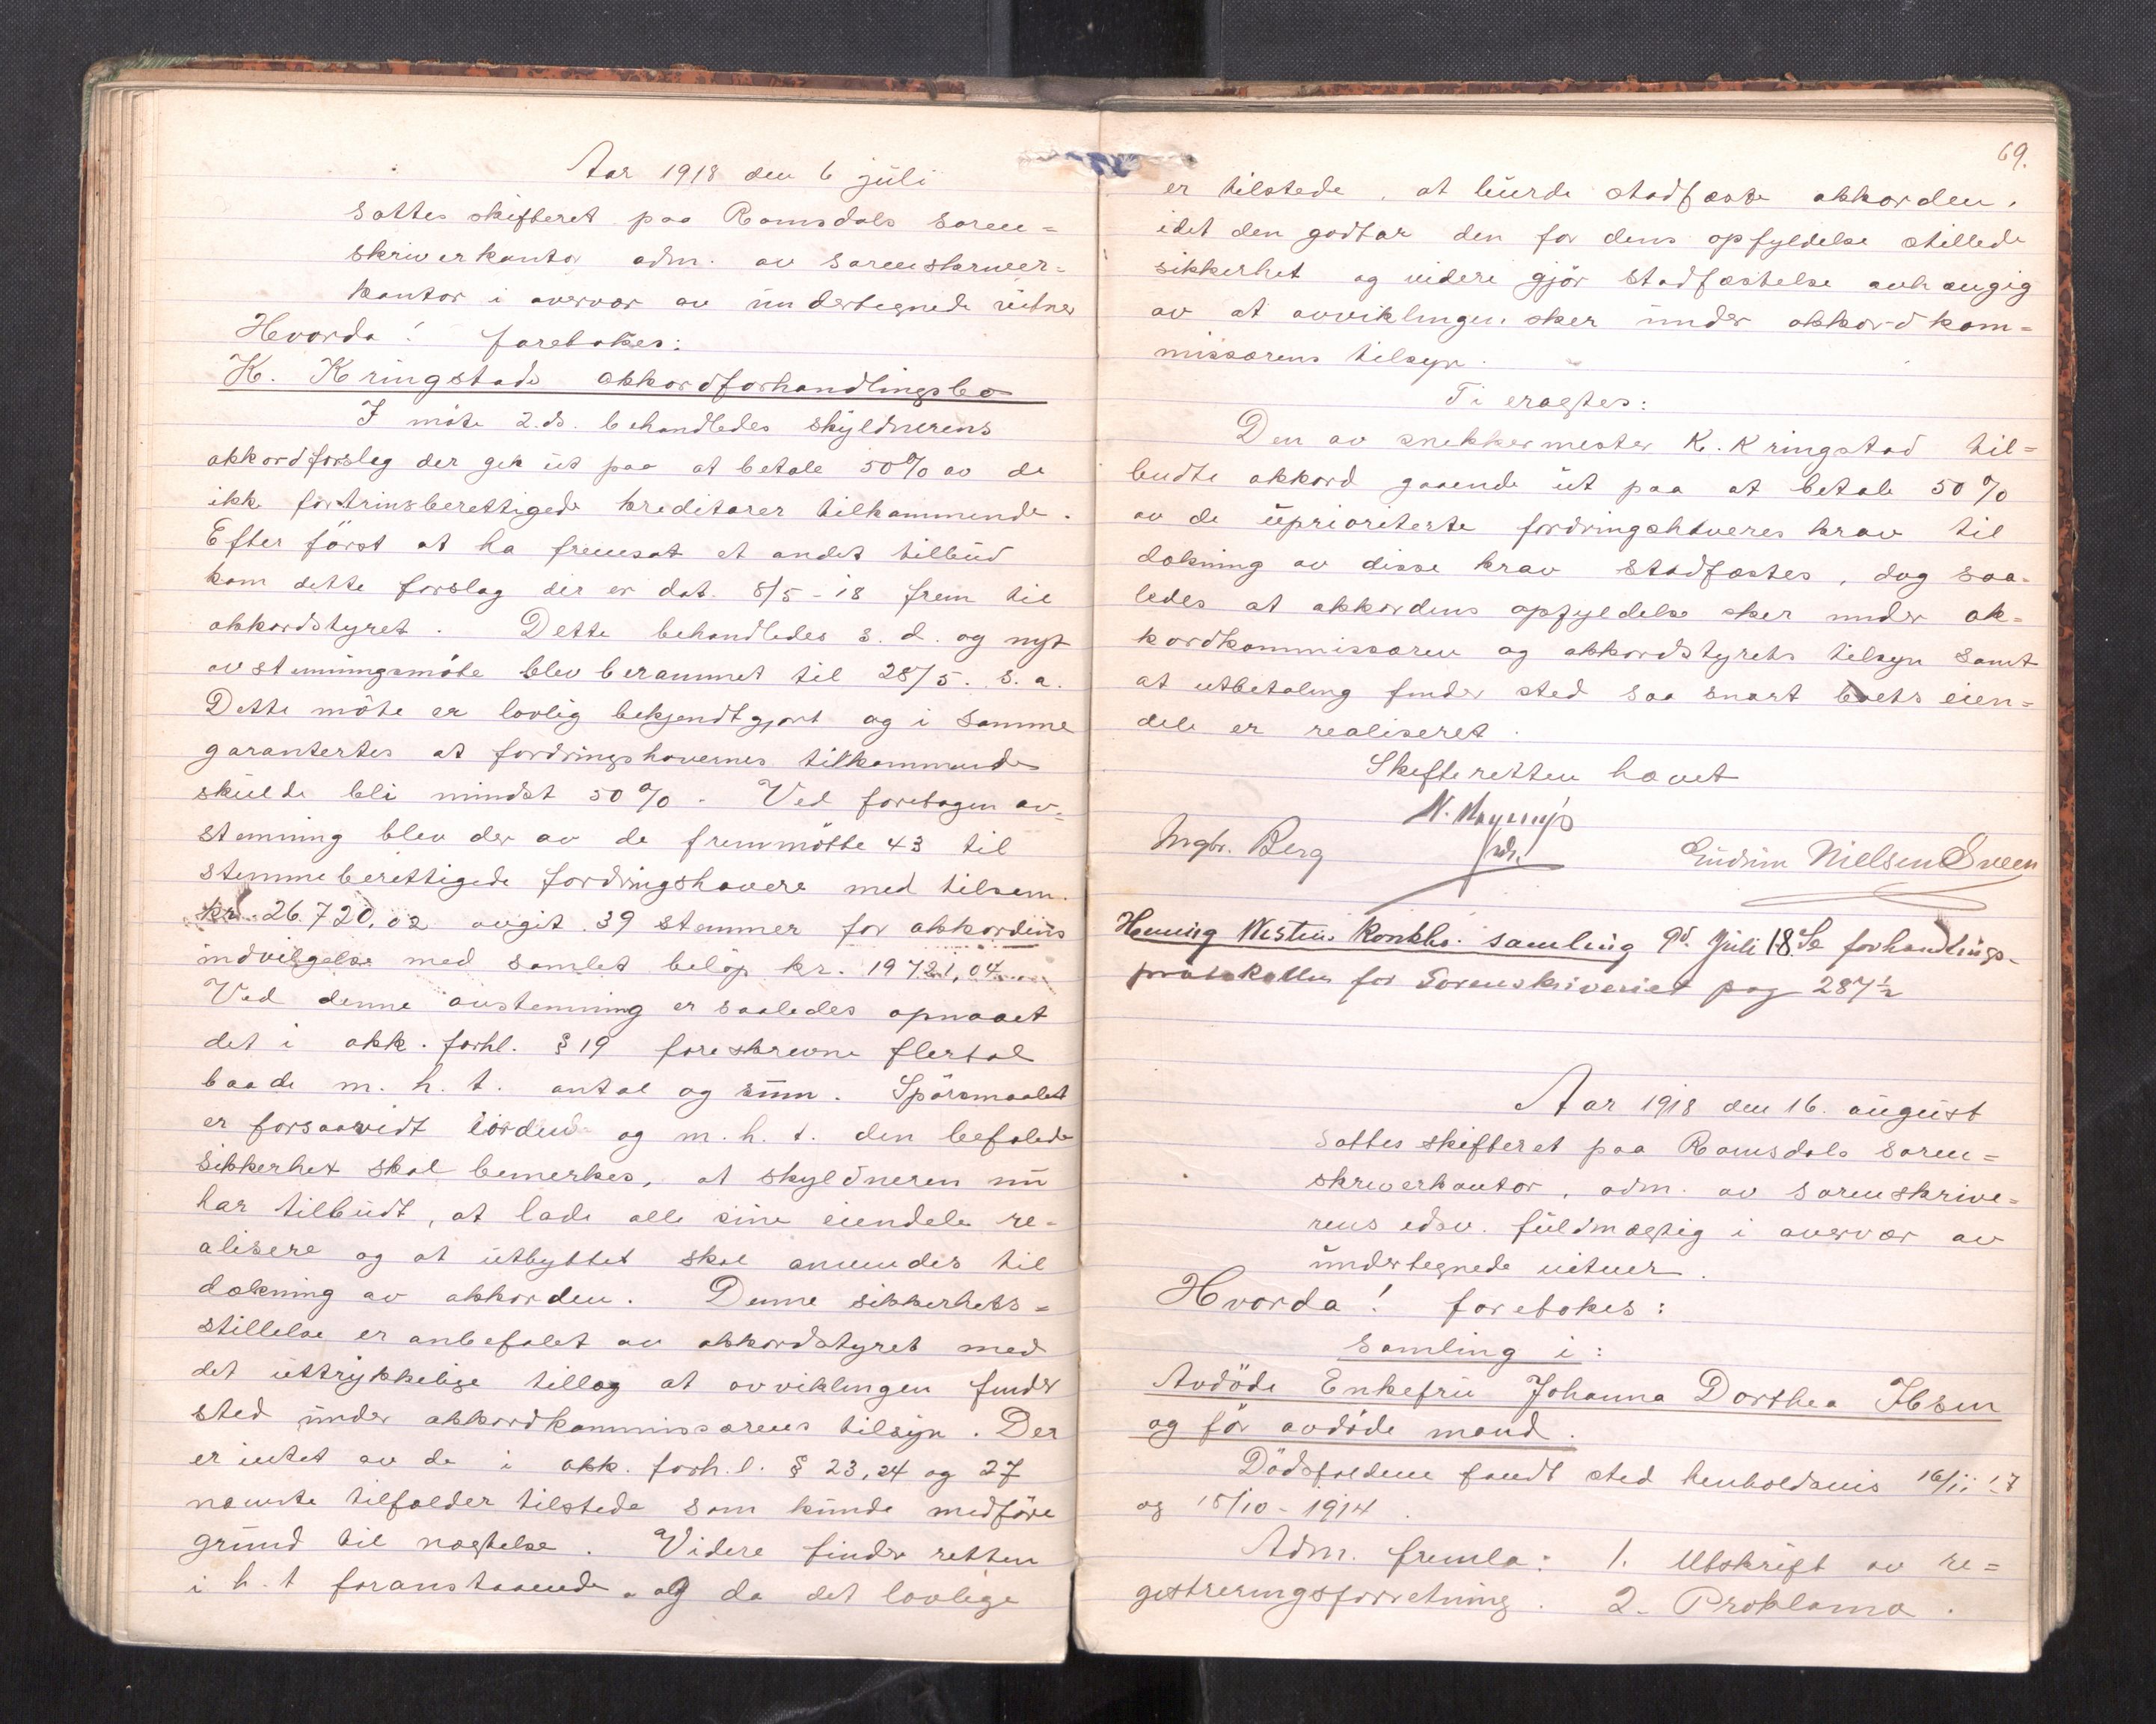 Aar 1918 den 6 juli
sattes skifteret paa Romsdals soren=
skriverkontor adm. av sorenskriver=
kontor i overvær av undertegnede vitner
Hvorda! foretokes:
K. Kringstads akkordforhandlingsbo
I møte 2. ds. behandledes skyldnerens
akkordforslag der gik ut paa at betale 50% av de
ikke fortrinsberettigede kreditorer tilkommende.
Efter först at ha fremsat et andet tilbud
kom dette forslag der er dat. 8/5-18 frem til
akkordstyret. Dette behandledes s. d. og nyt
avstemningsmöte blev berammet til 28/5. s. a.
Dette möte er lovlig bekjendtgjort og i samme
garantertes at fordringshavernes tilkommende
skulde bli mindst 50%. Ved foretagen av=
stemning blev der av de fremmötte 43 til
stemmeberettigede fordringshavere med tilsam.
kr. 26.720,02 avgit 39 stemmer for akkordens
indvilgelse med samlet belöp kr. 19721,04
Ved denne avstemning er saaledes opnaaet
det i akk. forhl. § 19 foreskrevne flertal
baade m. h. t. antal og sum. Spörsmaalet
er forsaavidt iorden og m. h. t. den befalede
sikkerhet skal bemerkes, at skyldneren nu
har tilbudt, at lade alle sine eiendele re=
alisere og at utbyttet skal anvendes til
dækning av akkorden. Denne sikkerhets=
stillelse er anbefalet av akkordstyret med
det uttrykkelige tillæg at avviklingen finder
sted under akkordkommissærens tilsyn. Der
er intet av de i akk. forh. l. § 23, 24 og 27
nævnte tilfælder tilstede som kunde medföre
grund til nægtelse. Videre finder retten
i h. t foranstaaende og da det lovlige
69.
er tilstede, at burde stadfæste akkorden,
idet den godtar den for dens opfyldelse stillede
sikkerhet og videre gjör stadfæstelse avhængig
av at avviklingen sker under akkordkom=
missærens tilsyn.
Ti eragtes:
Den av snekkermester K. Kringstad til=
budte akkord gaaende ut paa at betale 50%
av de uprioriterte fordringshaveres krav til
dækning av disse krav stadfæstes, dog saa=
ledes at akkordens opfyldelse sker under ak=
kordkommissæren og akkordstyrets tilsyn samt
at utbetaling finder sted saa snart boets eien=
dele er realiseret.
Skifteretten hævet
Ingbr. Berg
Gudrun Nielsen Sveen
Henning Westins konkbo. samling 9d. Juli 18. Se forhandlings-
protokollen for Sorenskriveriet pag 287½
Aar 1918 den 16. august
sattes skifteret paa Romsdals soren=
skriverkontor, adm. av sorenskrive=
rens edsv. fuldmægtig i overvær av
undertegnede vitner.
Hvorda! foretokes:
samling i:
Avdöde Enkefru Johanna Dorthea Ibsen
og för avdöde mand.
Dödsfaldene fandt sted henholdsvis 16/11 17
og 15/10 - 1914.
Adm. fremla: 1. Utskrift av re=
gistreringsforretning. 2. Proklama.